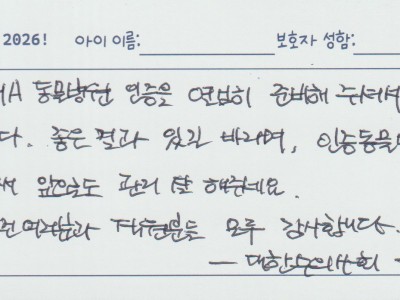 2026! 아이 이름: 보호자 성함:
동물병원 인증을 열심히 준비해 주셔서
다. 좋은 결과 있길 바라며, 인증동물
앞으로도 관리 잘 해주세요.
모두 감사합니다.
- 대한수의사회 -